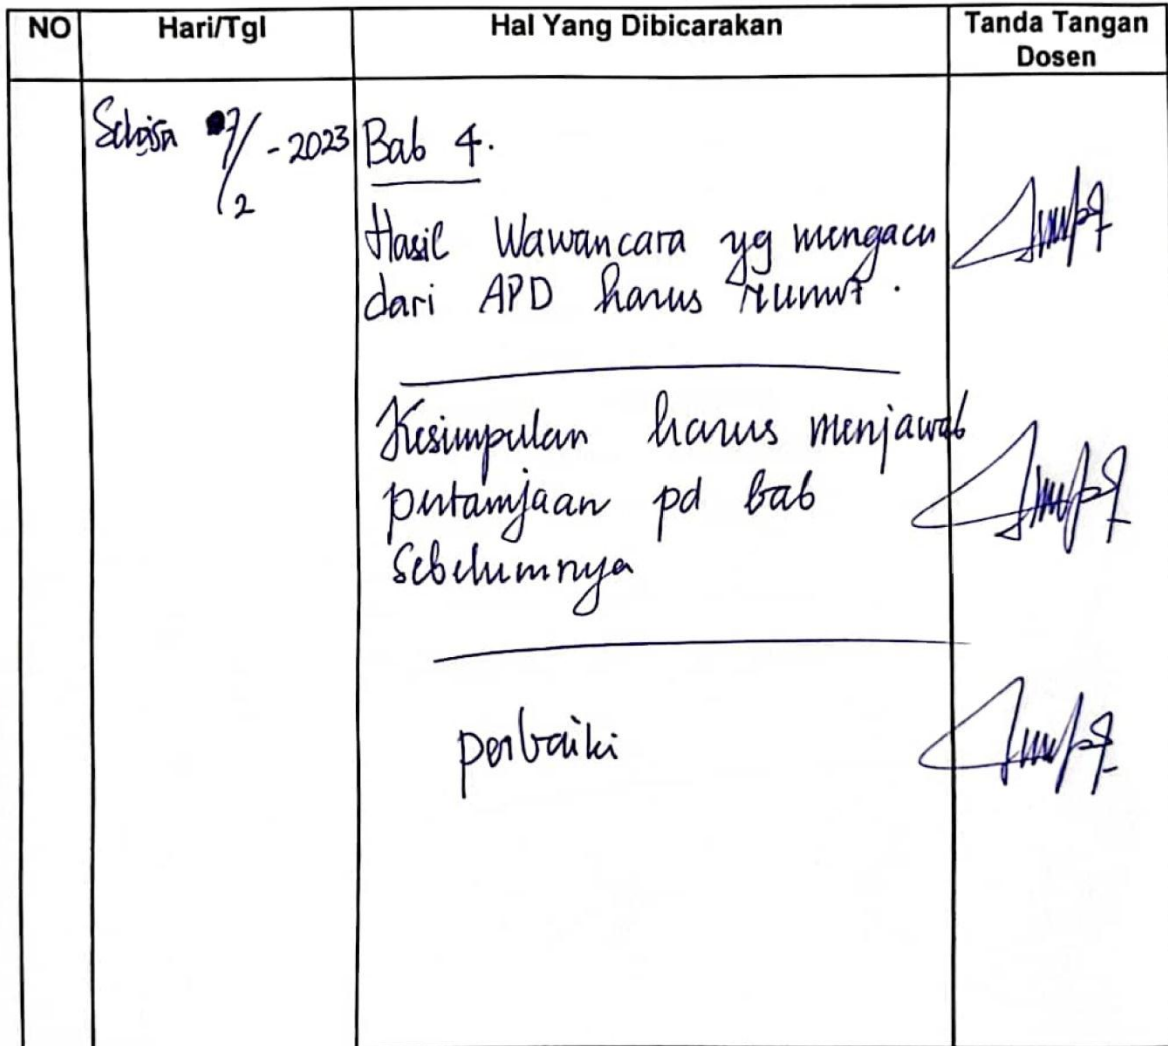 NO Hari/Tgl Hal Yang Dibicarakan Tanda Tangan Dosen
Selasa 07/2 - 2023
Bab 4.
Hasil Wawancara yg mengacu
dari APD harus runut.
Kesimpulan harus menjawab
pertanyaan pd bab
Sebelumnya
perbaiki